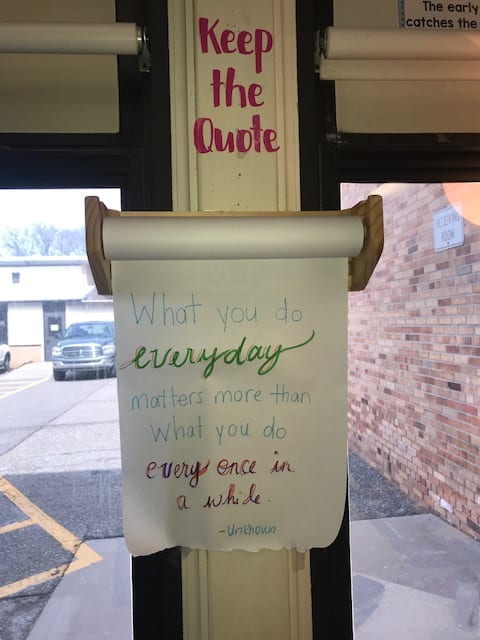 Keep
the
Quote
The early
catches the
RECEIVING
ROOM
What you do
everyday
matters more than
what you do
every once in
a while.
-Unknown